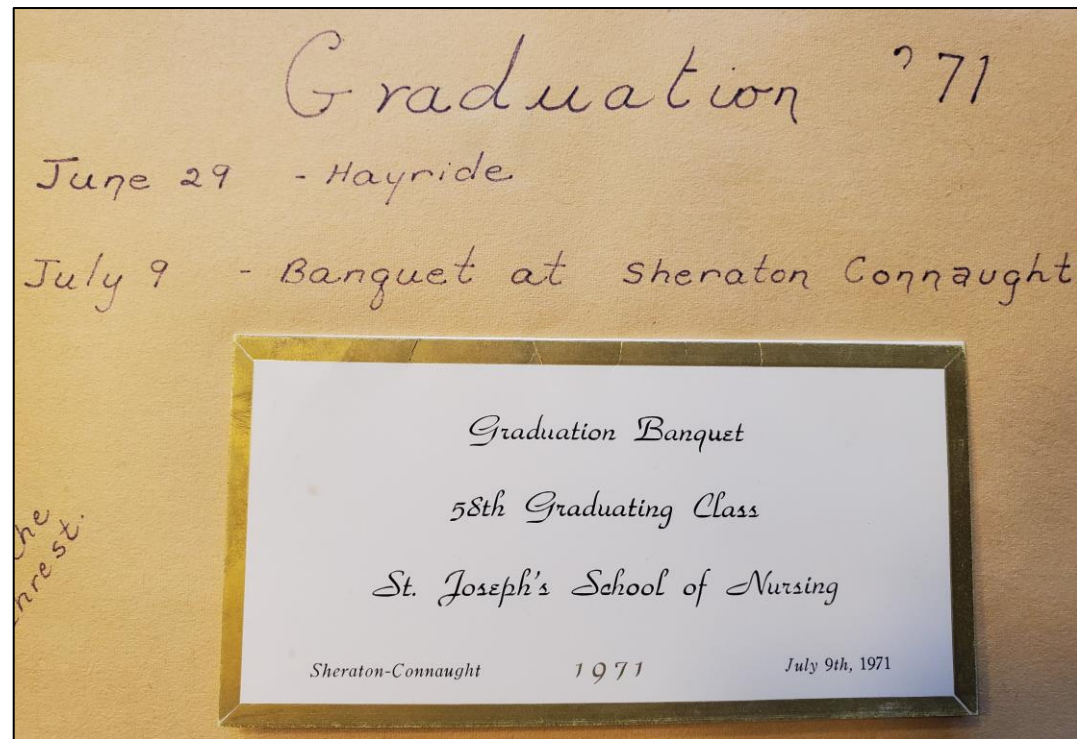 Graduation '71
June 29 - Hayride
July 9 - Banquet at Sheraton Connaught
Graduation Banquet
58th Graduating Class
St. Joseph's School of Nursing
Sheraton-Connaught 1971 July 9th, 1971